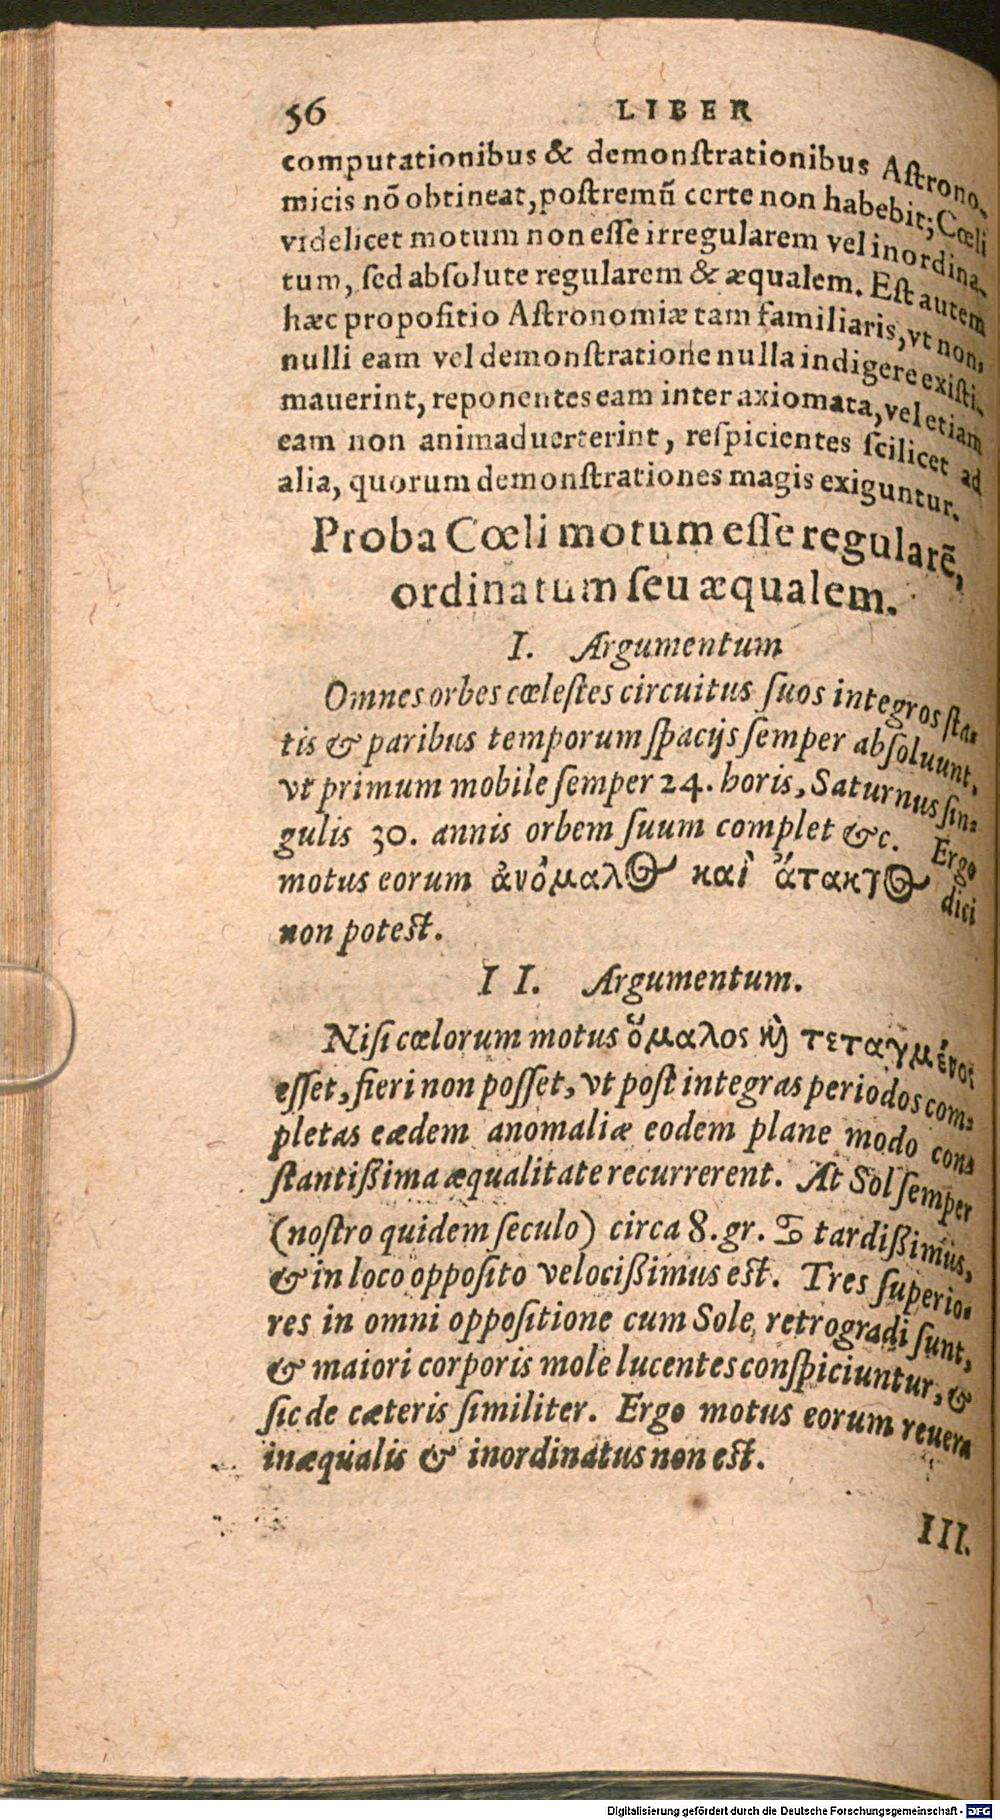 56 LIBER
computationibus & demonſtrationibus Aſtrono-
micis nõ obtineat, poſtremũ certe non habebit; Cœli
videlicet motum non eſſe irregularem vel inordina-
tum, ſed abſolute regularem & æqualem. Eſt autem
hæc propoſitio Aſtronomiæ tam familiaris, vt non,
nulli eam vel demonſtratione nulla indigere exiſti-
mauerint, reponentes eam inter axiomata, vel etiam
eam non animaduerterint, reſpicientes ſcilicet ad
alia, quorum demonſtrationes magis exiguntur.
Proba Cœli motum eſſe regularẽ,
ordinatum ſeu æqualem.
I. Argumentum
Omnes orbes cœleſtes circuitus ſuos integros ſta-
tis & paribus temporum ſpacijs ſemper abſoluunt,
vt primum mobile ſemper 24. horis, Saturnus ſin-
gulis 30. annis orbem ſuum complet &c. Ergo
motus eorum ἀνόμαλος καὶ ἄτακτος dici
non poteſt.
II. Argumentum.
Niſi cœlorum motus ὅμαλος ϗ̀ τεταγμένος
eſſet, fieri non poſſet, vt poſt integras periodos com-
pletas eædem anomaliæ eodem plane modo con-
ſtantißima æqualitate recurrerent. At Sol ſemper
(noſtro quidem ſeculo) circa 8. gr. ♋ tardißimus,
& in loco oppoſito velocißimus eſt. Tres ſuperio-
res in omni oppoſitione cum Sole, retrogradi ſunt,
& maiori corporis mole lucentes conſpiciuntur, &
ſic de cæteris ſimiliter. Ergo motus eorum reuera
inæqualis & inordinatus non eſt.
III.
Digitalisierung gefördert durch die Deutsche Forschungsgemeinschaft - DFG